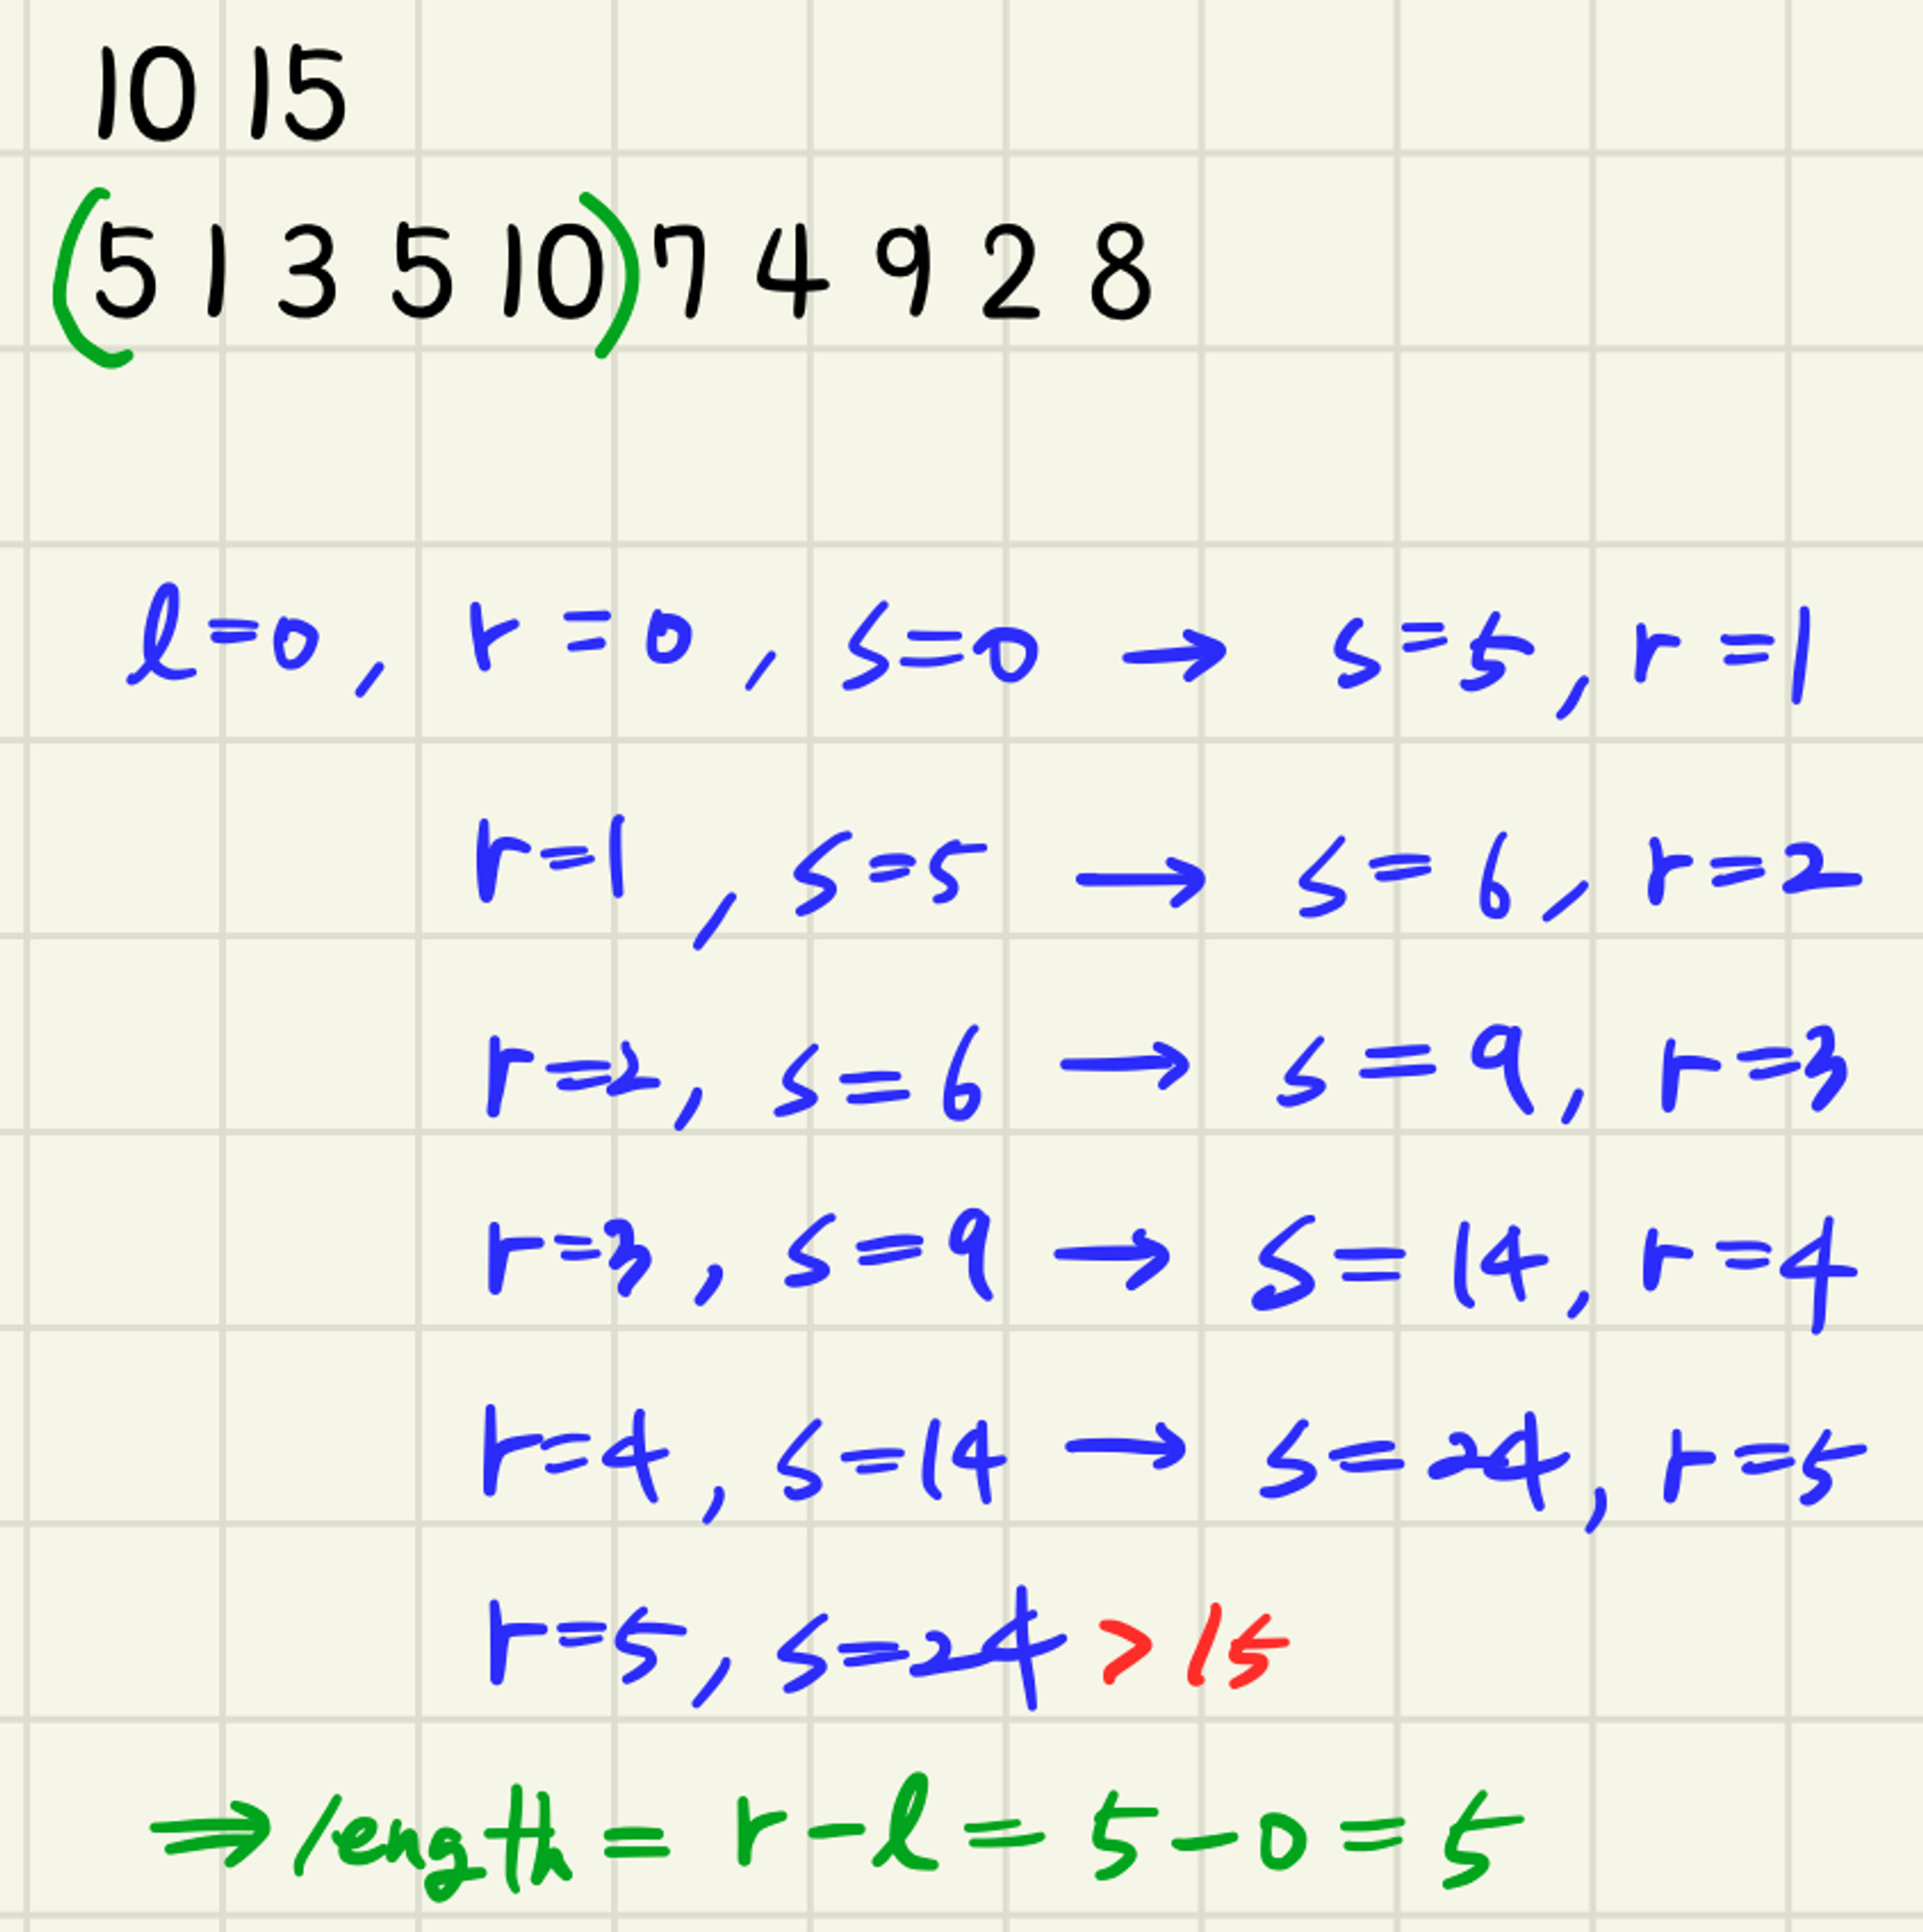 10 15
(5 1 3 5 10) 7 4 9 2 8
l=0, r=0, s=0 → s=5, r=1
r=1, s=5 → s=6, r=2
r=2, s=6 → s=9, r=3
r=3, s=9 → s=14, r=4
r=4, s=14 → s=24, r=5
r=5, s=24 > 15
⇒ length = r-l = 5-0 = 5